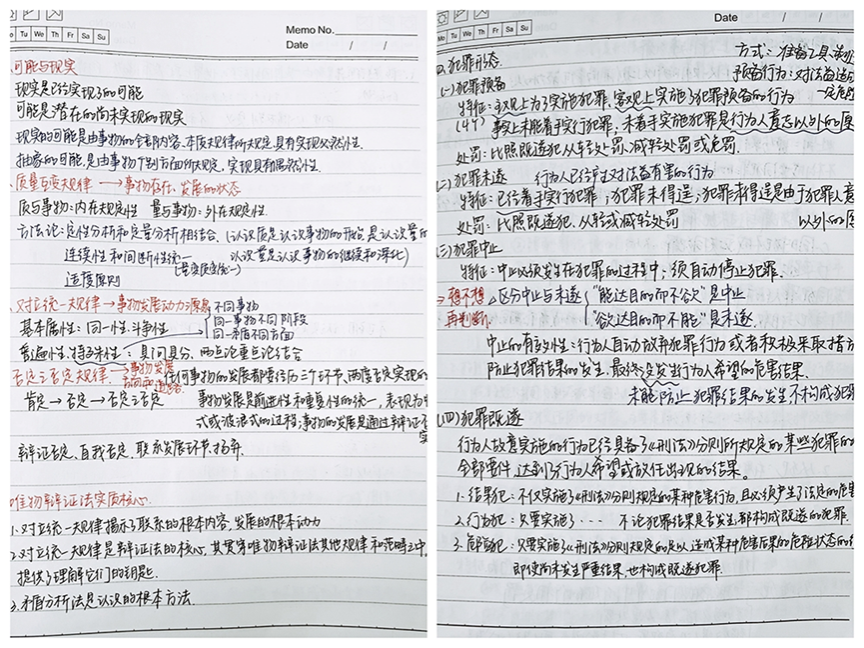 Tu We Th Fr Sa Su
Memo No.
Date / /
可能与现实
现实是已经实现了的可能
可能是潜在的尚未实现的现实
现实的可能是由事物的全部内容、本质规律所规定,具有实现必然性.
抽象的可能是由事物个别方面所规定,实现具有偶然性.
质量互变规律 → 事物存在、发展的状态
质与事物:内在规定性 量与事物:外在规定性.
方法论:定性分析和定量分析相结合.(认识质是认识事物的开始,是认识量的
连续性和间断性统一 认识量是认识事物的继续和深化)
适度原则
对立统一规律→事物发展动力源泉
不同事物
基本属性:同一性.斗争性
同一事物不同阶段
同一矛盾不同方面
普遍性,特殊性:具问具分,两点论重点论结合
否定之否定规律.→事物发展
任何事物的发展都要经历三个环节、两度否定实现的
肯定→否定→否定之否定 事物发展是前进性和重复性的统一,表现为
式或波浪式的过程,事物的发展是通过辩证否
辩证否定、自我否定、联系发展环节、扬弃.
唯物辩证法实质核心.
1.对立统一规律揭示了联系的根本内容,发展的根本动力
2.对立统一规律是辩证法的核心,其贯穿唯物辩证法其他规律和范畴之中,
提供了理解它们的钥匙.
3.矛盾分析法是认识的根本方法.
Mo Tu We Th Fr Sa Su
Date / /
犯罪形态
方式:准备工具、制造
(一)犯罪预备
预备行为:对法益造成
一定危险
特征:主观上为了实施犯罪,客观上实施了犯罪预备的行为
(4个)事实上未能着手实行犯罪,未着手实施犯罪是行为人意志以外的原
处罚:比照既遂犯从轻处罚、减轻处罚或免罚.
(二)犯罪未遂 行为人已经产生对法益有害的行为
特征:已经着手实行犯罪;犯罪未得逞;犯罪未得逞是由于犯罪人意
处罚:比照既遂犯、从轻或减轻处罚 以外的原
(三)犯罪中止
特征:中止必须发生在犯罪的过程中,须自动停止犯罪.
→想不想
再判断.
区分中止与未遂
"能达目的而不欲"是中止
"欲达目的而不能"是未遂.
中止的有效性:行为人自动放弃犯罪行为或者积极采取措
防止犯罪结果的发生.最终没发生行为人希望的危害结果.
未能防止犯罪结果的发生不构成犯
(四)犯罪既遂
行为人故意实施的行为已经具备了《刑法》分则所规定的某些犯罪的
全部要件,达到了行为人希望或放任出现的结果。
1.结果犯:不仅实施了《刑法》分则规定的某种危害行为,且必须产生了法定的危害
2.行为犯:只要实施了… 不论犯罪结果是否发生,都构成既遂的犯罪.
3.危险犯:只要实施了《刑法》分则规定的足以造成某种危害后果的危险状态的
即使尚未发生严重结果,也构成既遂犯罪.